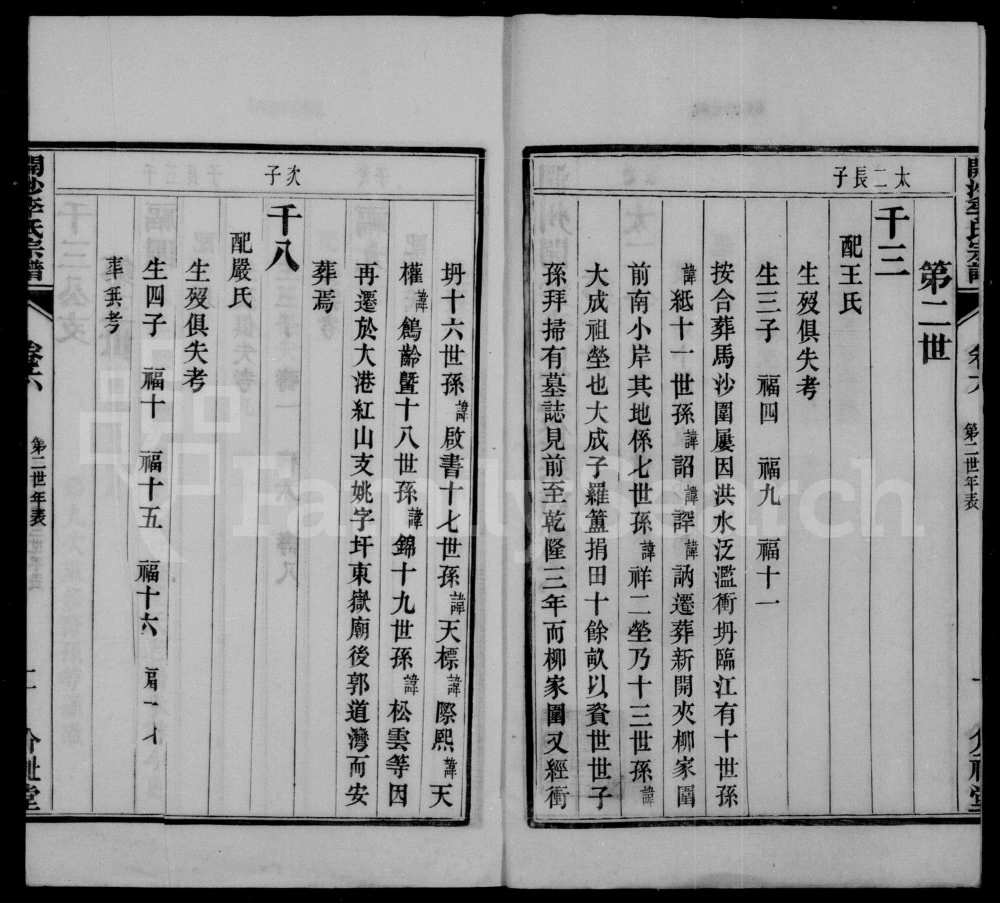 開沙李氏宗譜
卷六
第二世年表
一
介祉堂
第二世
太二長子
千三
配王氏
生歿俱失考
生三子 福四 福九 福十一
按合葬馬沙圍屢因洪水泛濫衝坍臨江有十世孫
諱紙十一世孫諱詔諱諱訥遷葬新開夾柳家圍
前南小岸其地係七世孫諱祥二塋乃十三世孫諱
大成祖塋也大成子羅簠捐田十餘畝以資世世子
孫拜掃有墓誌見前至乾隆三年而柳家圍又經衝
坍十六世孫諱啟書十七世孫諱天標諱際熙諱天
權諱鶴齡暨十八世孫諱錦十九世孫諱松雲等因
再遷於大港紅山支姚字圩東嶽廟後郭道灣而安
葬焉
次子
千八
配嚴氏
生歿俱失考
生四子 福十 福十五 福十六 福十七
葬無考
開沙李氏宗譜
卷六
第二世年表
二
介祉堂
FamilySearch